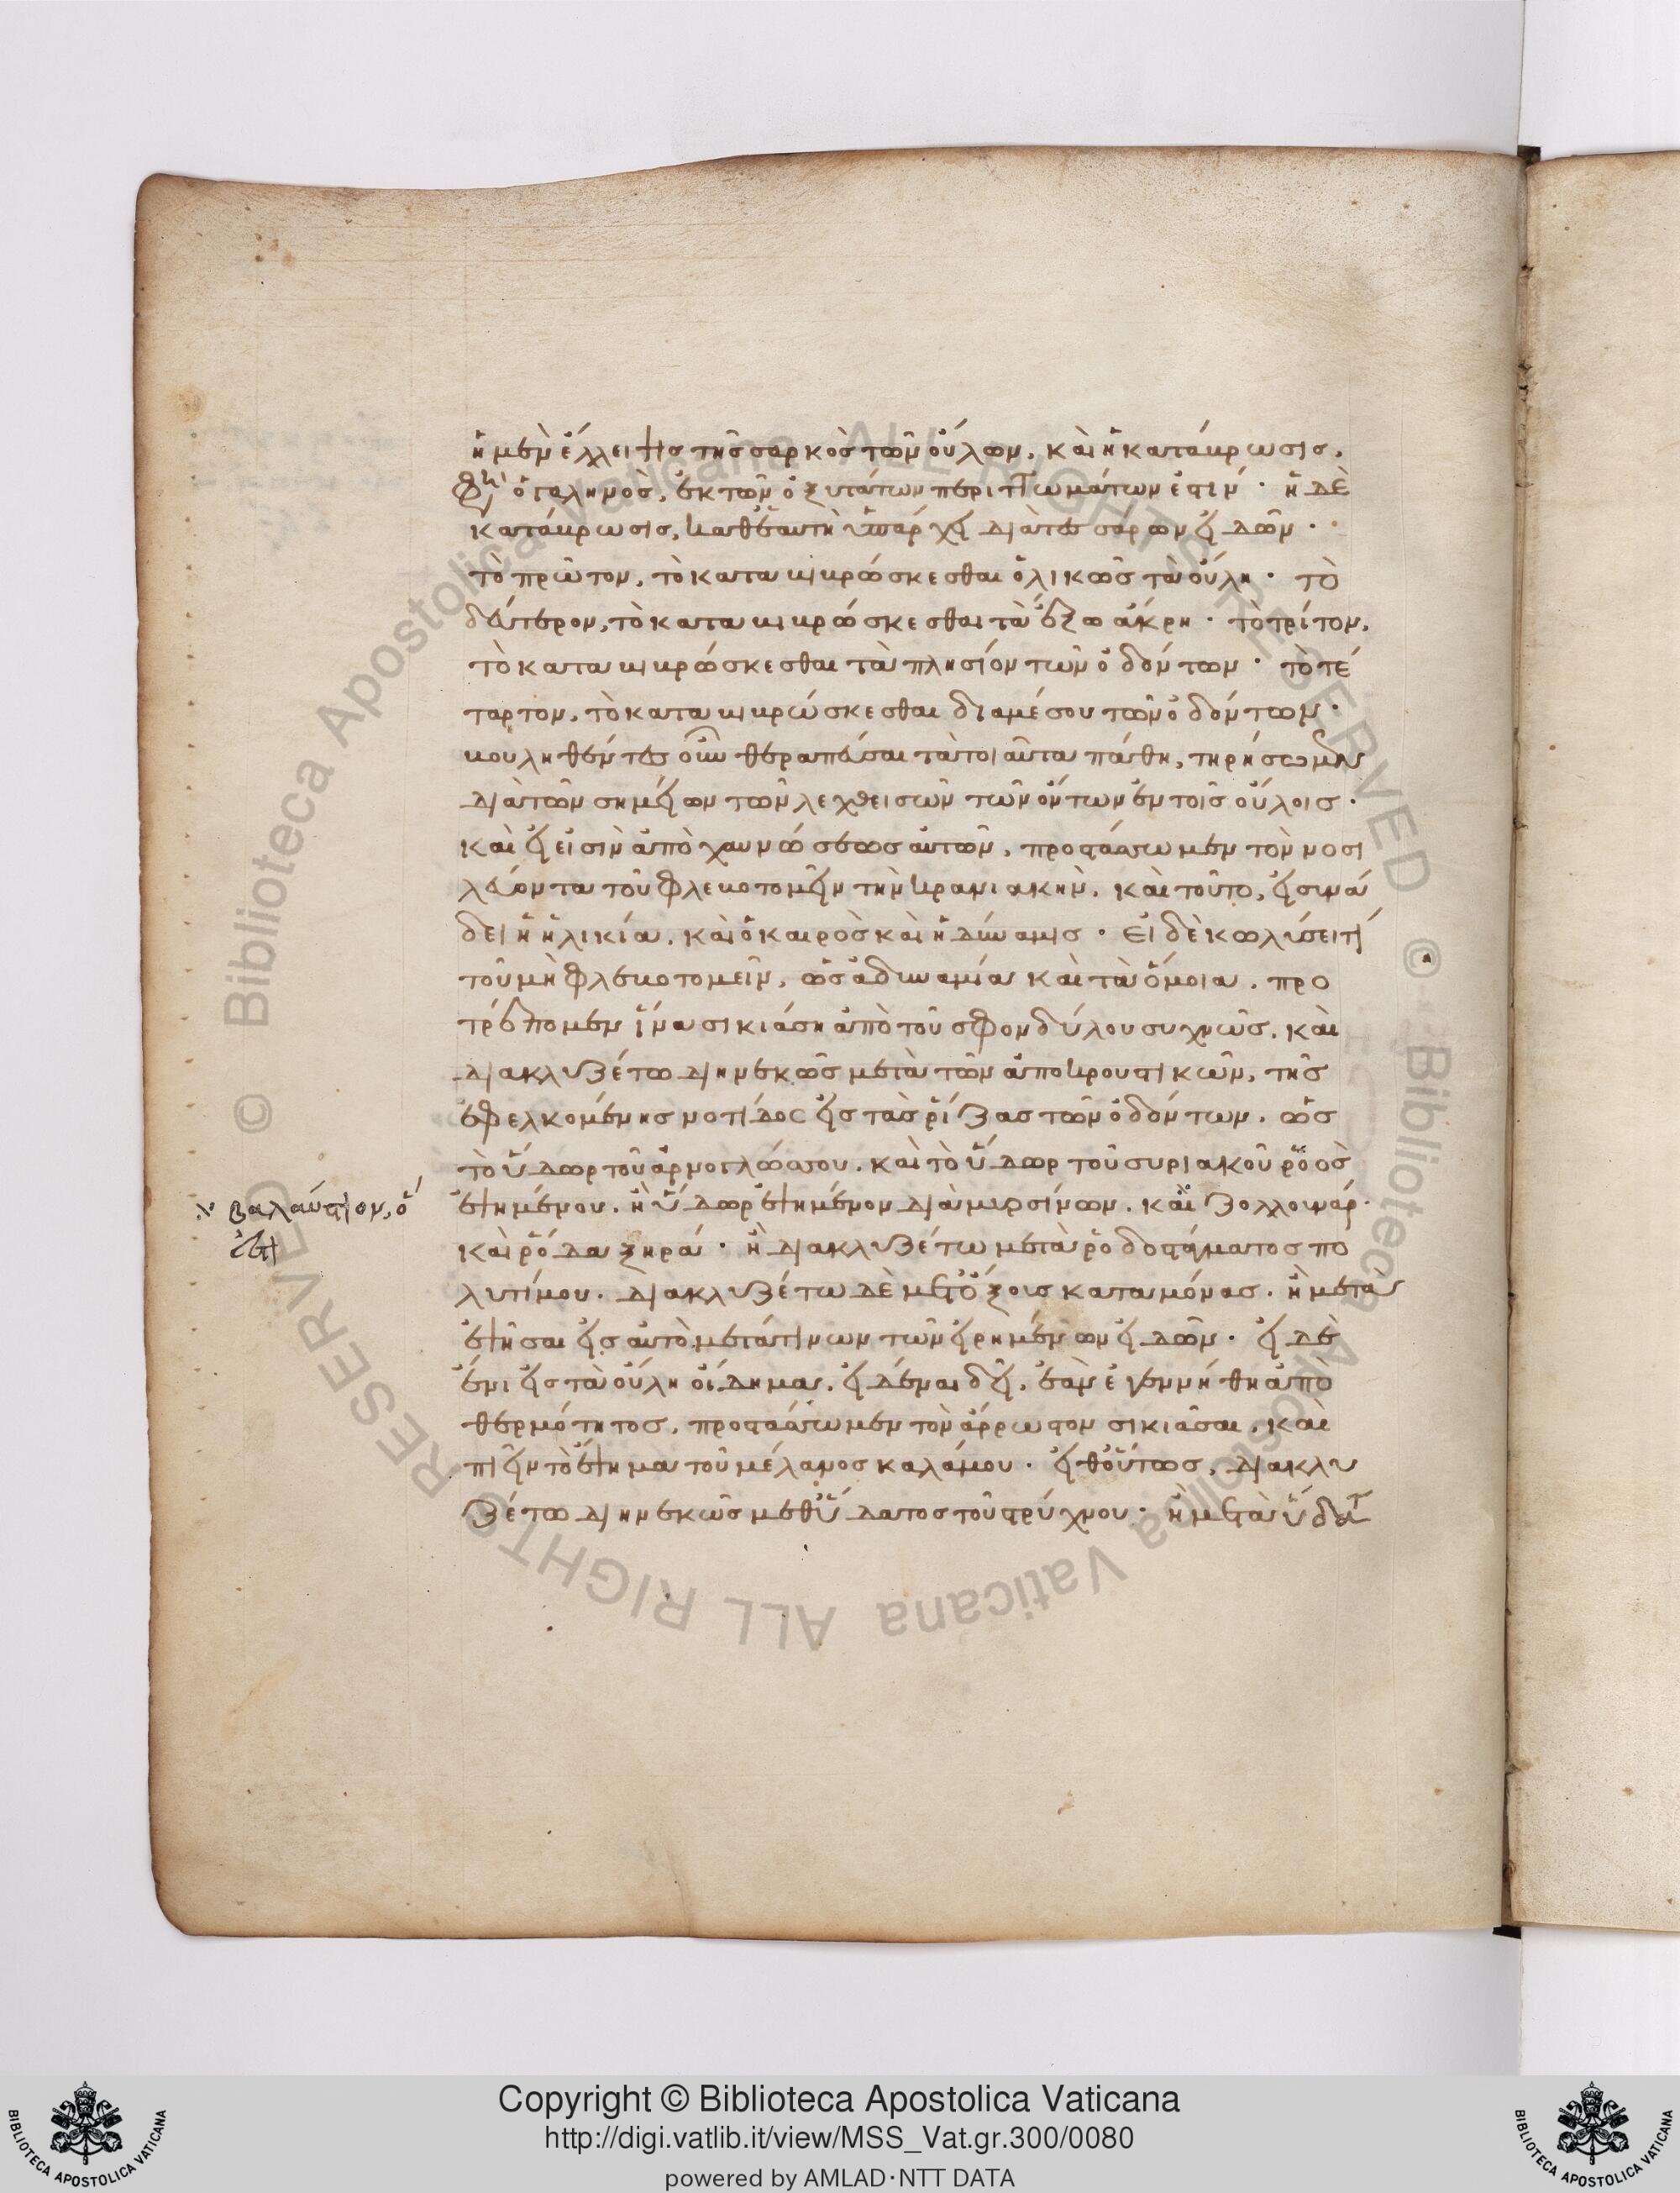 ἡ μὲν ἔλλειψις τῆς σαρκὸς τῶν οὔλων, καὶ ἡ κατάβρωσις,
ὁ γαληνὸς, ἐκ τῶν ὀξυτάτων περιττωμάτων ἐστίν · ἡ δὲ
κατάβρωσις, καθ' ἑαυτὴν ὑπάρχει διὰ τεσσάρων εἰδῶν ·
τὸ πρῶτον, τὸ καταβιβρώσκεσθαι ὁλικῶς τὰ οὔλη · τὸ
δεύτερον, τὸ καταβιβρώσκεσθαι τὰ ἔξω ἄκρη · τὸ τρίτον,
τὸ καταβιβρώσκεσθαι τὰ πλησίον τῶν ὀδόντων · τὸ τέ
ταρτον, τὸ καταβιβρώσκεσθαι διαμέσου τῶν ὀδόντων ·
βουληθέντες οὖν θεραπεῦσαι τὰ τοιαῦτα πάθη, τηρήσωμεν
διὰ τῶν σημείων τῶν λεχθεισῶν τῶν ὄντων ἐν τοῖς οὔλοις ·
καὶ εἰ εἰσὶν ἀπὸ χαυνώσεως αὐτῶν, προστάττωμεν τὸν νοσι
λεύοντα τοῦ φλεβοτομεῖν τὴν κρανιακήν. καὶ τοῦτο, εἰ συνά
δει ἡ ἡλικία, καὶ ὁ καιρὸς καὶ ἡ δύναμις · εἰ δὲ κωλύσει τί
τοῦ μὴ φλεβοτομεῖν, ὡς ἀδυναμία καὶ τὰ ὅμοια, προ
τρέπομεν ἵνα σικιάση ἀπὸ τοῦ σφονδύλου συχνῶς, καὶ
διακλυζέτω διηνεκῶς μετὰ τῶν ἀποκρουστικῶν, τῆς
ἐφελκομένης νοτίδος εἰς τὰς ῥίζας τῶν ὀδόντων. ὡς
τὸ ὕδωρ τοῦ ἀρνογλώσσου, καὶ τὸ ὕδωρ τοῦ συριακοῦ ῥοὸς
ἑψημένου. ἢ ὕδωρ ἑψημένον διὰ μυρσίνων, καὶ ζολλουνάρ ·
καὶ ῥόδα ξηρά · ἢ διακλυζέτω μετὰ ῥοδοστάγματος πο
λυτίμου. διακλυζέτω δὲ μετ' ὄξους καταμόνας. ἢ μετὰ
ἑψῆσαι εἰς αὐτὸ μετά τινων τῶν εἰρημένων εἰδῶν · εἰ δὲ
ἔνι εἰς τὰ οὔλη οἴδημα, εἰδέναι δεῖ, ἐὰν ἐγεννήθη ἀπὸ
θερμότητος, προστάττωμεν τὸν ἄρρωστον σικιάσαι, καὶ
πιεῖν τὸ ἕψημα τοῦ μέλανος καλάμου · εἶθ' οὕτως, διακλυ
ζέτω διηνεκῶς μεθ' ὕδατος τοῦ στρύχνου · ἢ μετὰ ὕδατ
βαλαύστιον, ὅ
ἐστι